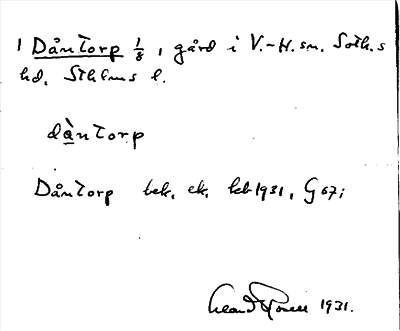 1 Dåntorp 1/8, gård i V.-H. sn. Soth.s
hd. Sthlms l.
dàntorp
Dåntorp bek. ek. kb 1931, G 67;
1931.